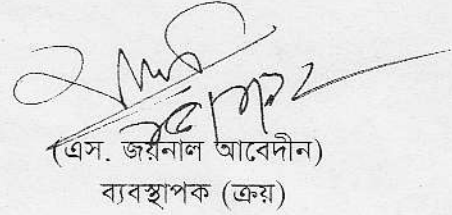 (এস. জয়নাল আবেদীন)
ব্যবস্থাপক (ক্রয়)